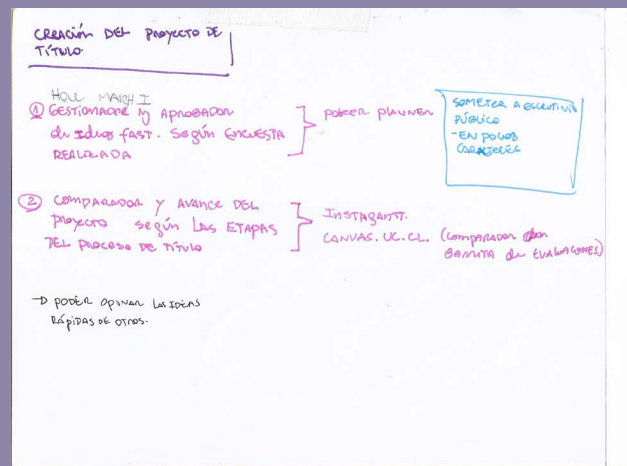 CREACIÓN DEL PROYECTO DE
TÍTULO.
① GESTIONADOR y APROBADOR
de Ideas fast. Según ENCUESTA
REALIZADA
PLANNER
SOMETER A ESCRUTINIO
PÚBLICO
-EN POCOS
CARACTERES
② COMPARADOR Y AVANCE DEL
proyecto según LAS ETAPAS
DEL PROCESO DE TÍTULO
INSTAGANTT.
CANVAS.UC.CL. (COMPARADOR
BARRITA de EVALUACIONES)
→ PODER OPINAR LAS IDEAS
RÁPIDAS DE OTROS.